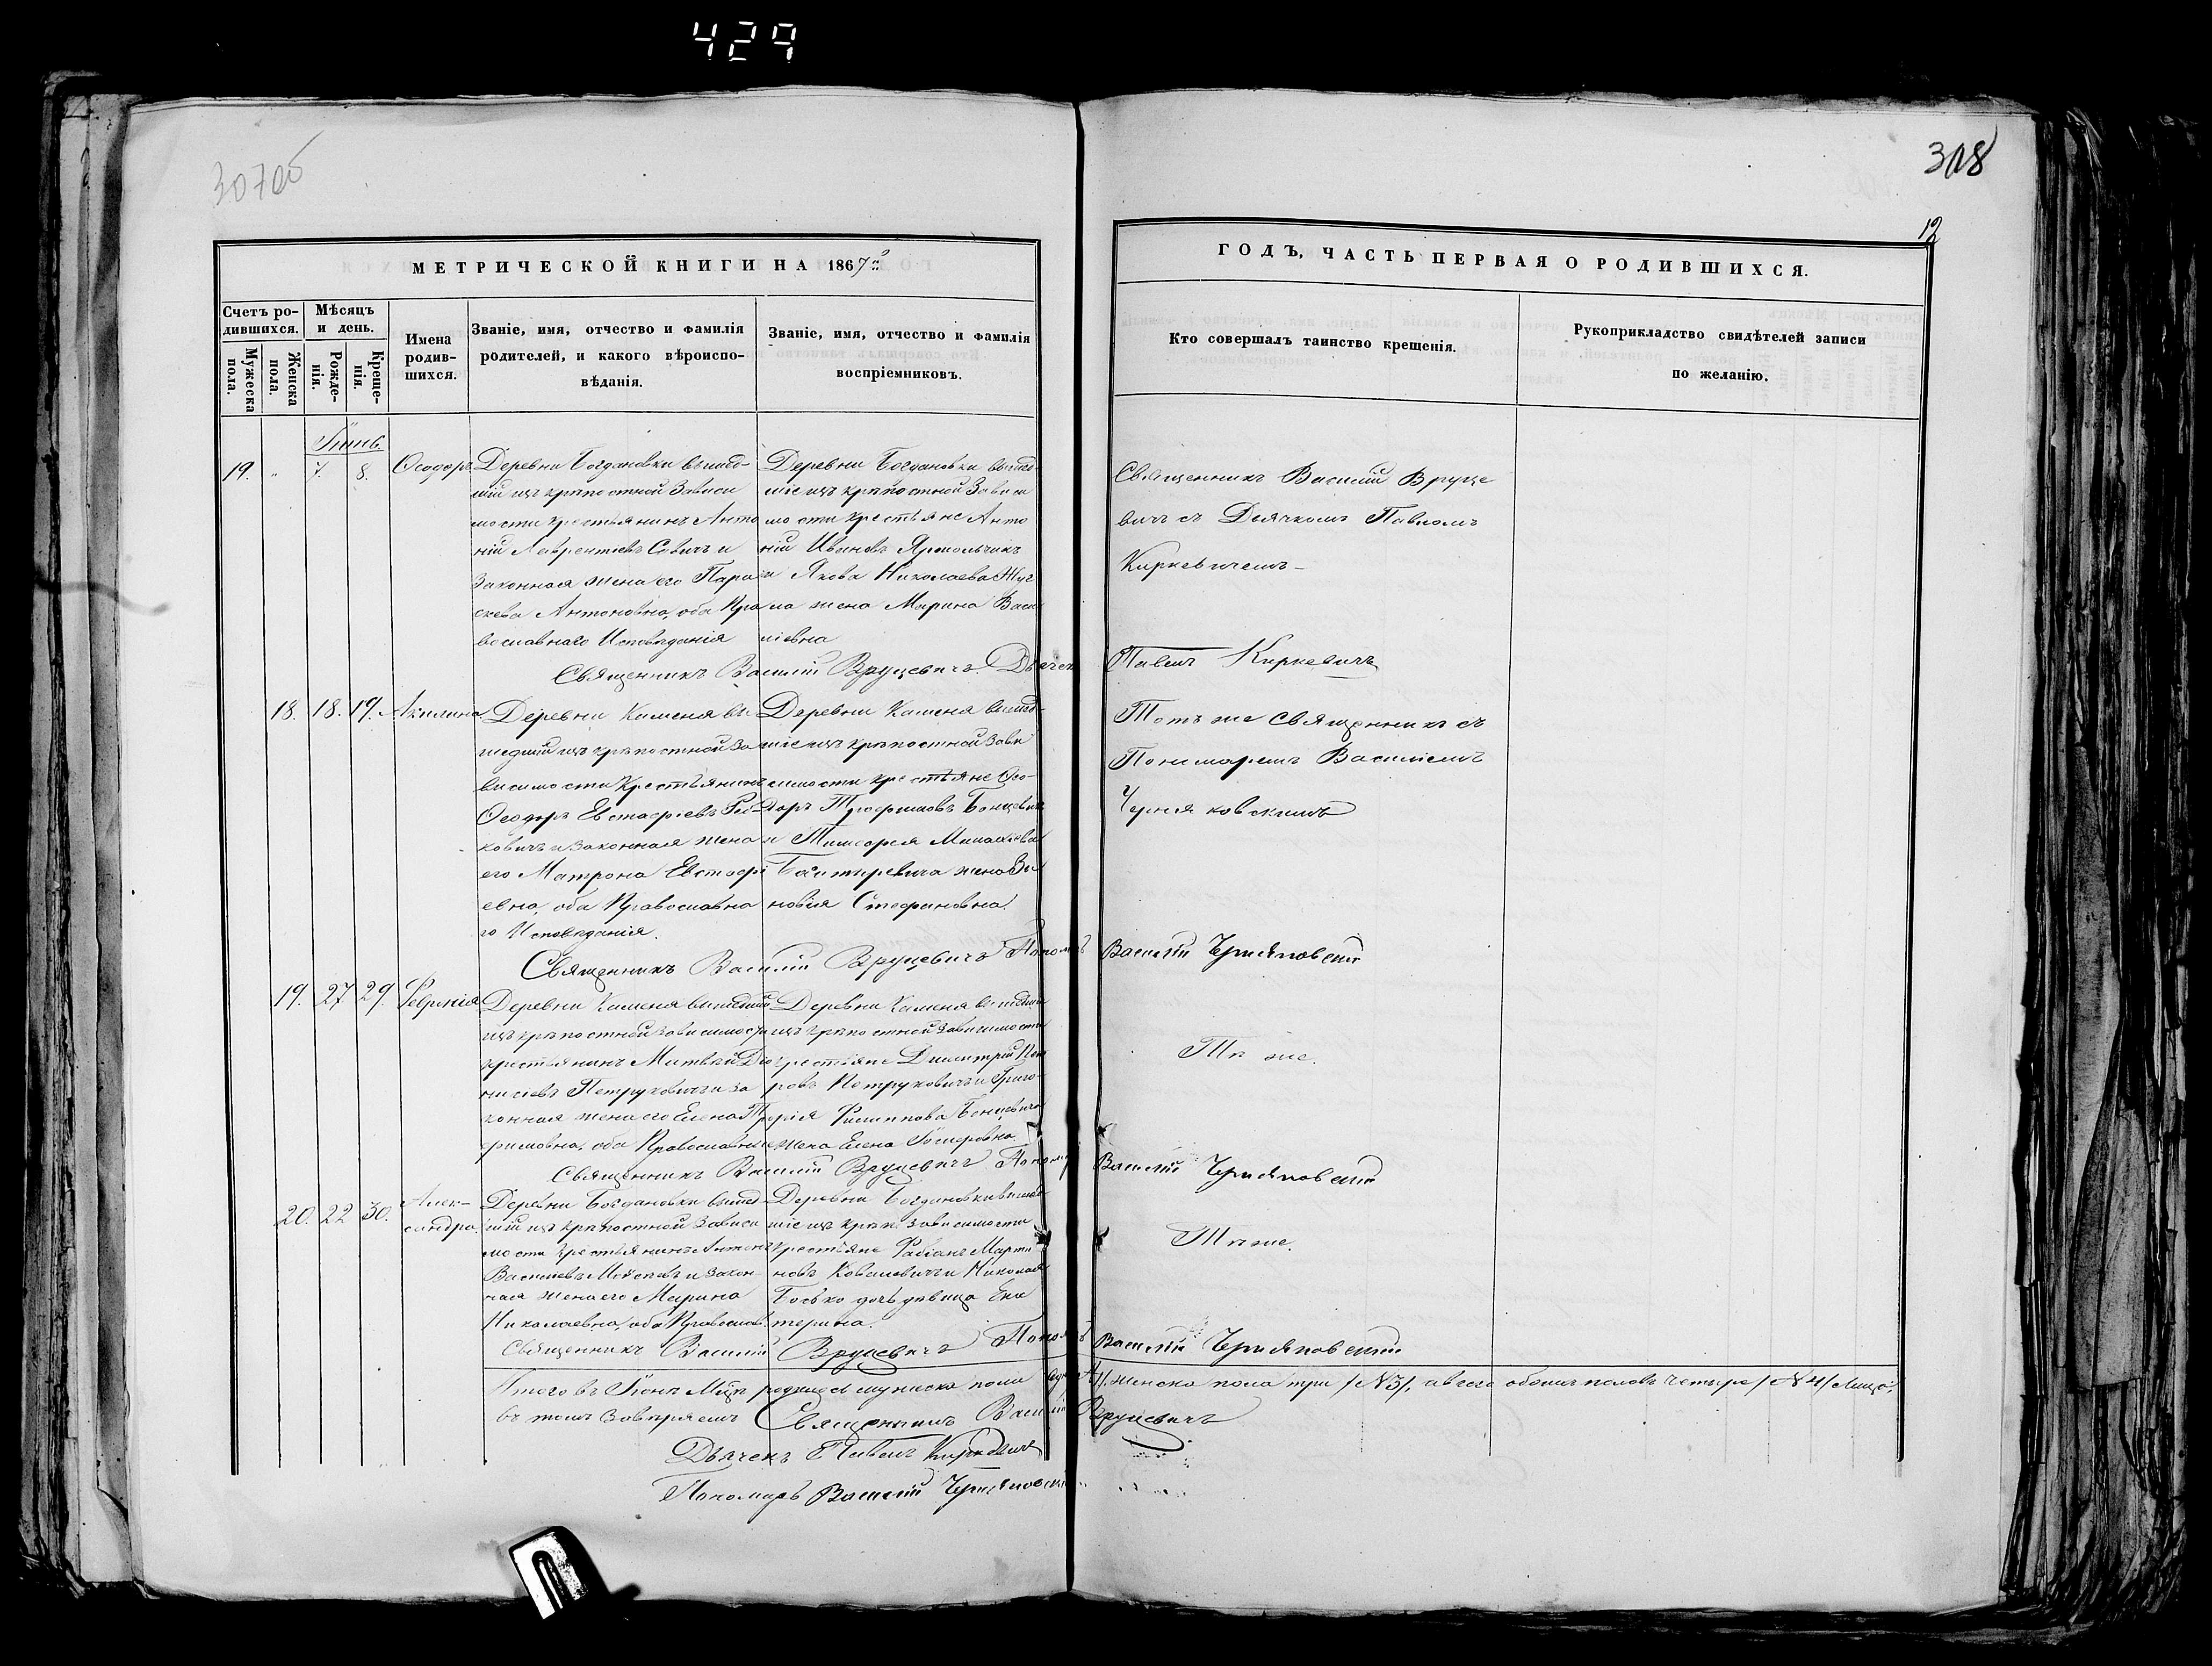 429
307об
308
12
МЕТРИЧЕСКОЙ КНИГИ НА 1867й
ГОДЪ, ЧАСТЬ ПЕРВАЯ О РОДИВШИХСЯ.
Счетъ ро-
дившихся.
Мужеска
пола.
Женска
пола.
Мѣсяцъ
и день.
Рожде-
нія.
Креще-
нія.
Имена
родив-
шихся.
Званіе, имя, отчество и фамилія
родителей, и какого вѣроиспо-
вѣданія.
Званіе, имя, отчество и фамилія
воспріемниковъ.
Кто совершалъ таинство крещенія.
Рукоприкладство свидѣтелей записи
по желанію.
Іюнь
19. " 7. 8. Ѳеодоръ
Деревни Богдановки вышед-
шій изъ крѣпостной Зависи
мости крестьянинъ Анто
ній Лаврентіевъ Савичъ и
Законная жена его Пара
скева Антоновна, оба Пра
вославнаго Исповѣданія
Деревни Богдановки вышед
шіе изъ крѣпостной Зависи
мости крестьяне Анто
ній Ивановъ Ярмольчикъ
и Якова Николаева
на жена Марина Васи
ліевна
Священникъ Василій Вруце
вичъ съ Дьячкомъ Павломъ
Киркевичемъ
Священникъ Василій Вруцевичъ. Дьячекъ Павелъ Киркевичъ
18. 18. 19. Акилина
Деревни Каменя вы
шедшій изъ крѣпостной За
висимости Крестьянинъ
Ѳеодоръ Евстафіевъ
ковичъ и Законная жена
его Матрона Евстафі
евна, оба Православна
го Исповѣданія.
Деревни Каменя вышед-
шіе изъ крѣпостной Зави
симости крестьяне Ѳео-
доръ Трофимовъ Бонцевичъ
и Тимофея
жена Зи
новія Стефановна.
Тотъ же Священникъ съ
Пономаремъ Василіемъ
Черняковскимъ
Священникъ Василій Вруцевичъ Пономарь Василій Черняковскій
19. 27 29. Февронія
Деревни Каменя вышедшій
изъ крѣпостной зависимости
крестьянинъ Матвѣй Діо
нисіевъ Петруковичъ и за
конная жена его Елена Тро
фимовна, оба Православные
Деревни Каменя вышедшіе
изъ крѣпостной Зависимости
крестьяне Димитрій Пет
ровъ Петруковичъ и Григо-
рія Филиппова Бонцевича
жена Елена
Тѣ же.
Священникъ Василій Вруцевичъ Пономарь Василій Черняковскій
20. 22 30. Алек-
сандра.
Деревни Богдановки вышед
шій изъ крѣпостной Зависи
мости крестьянинъ Антонъ
Василіевъ и Закон-
ная жена его Марина
Николаевна, оба Православ.
Деревни Богдановки вышед
шіе изъ крѣпос Зависимости
крестьяне Фабіанъ Марти
новъ Ковалевичъ и Николая
Босько дочь дѣвица Ека
терина.
Тѣ же.
Священникъ Василій Вруцевичъ Пономарь Василій Черняковскій
Итого въ Іюнѣ Мѣсяцѣ родилось мужеска пола один /№ 1/, женска пола три /№ 3/, а всего обоихъ половъ четыре /№ 4/ лица,
въ томъ Завѣряемъ Священникъ Василій Вруцевичъ
Дьячекъ Павелъ Киркевичъ
Пономарь Василій Черняковскій